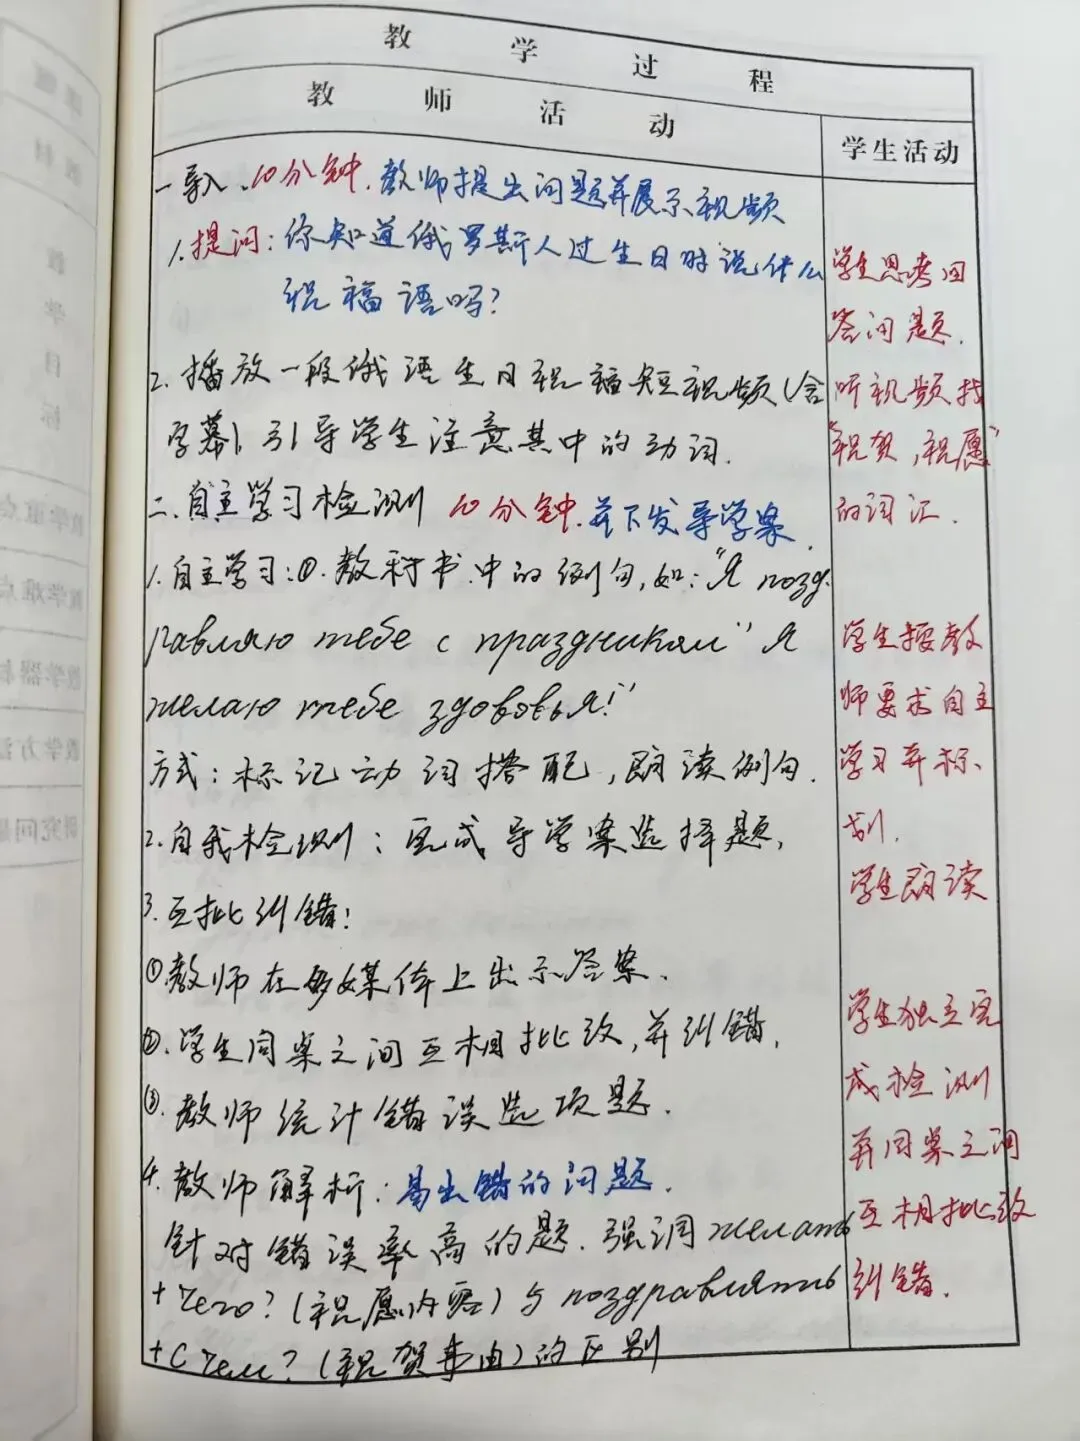 教学过程
教师活动
学生活动
一导入.10分钟.教师提出问题并展示视频
1.提问:你知道俄罗斯人过生日时说什么
祝福语吗?
2.播放一段俄语生日祝福短视频(含
字幕),引导学生注意其中的动词.
二.自主学习检测 10分钟.并下发导学案.
1.自主学习:①.教科书中的例句,如:"Я позд-
равляю тебе с праздником" Я
желаю тебе здововья!"
方式:标记动词搭配,朗读例句.
2.自我检测:完成导学案选择题,
3.互批纠错:
①教师在多媒体上出示答案.
②.学生同桌之间互相批改,并纠错,
③.教师统计错误选项题.
4.教师解析:易出错的问题.
针对错误率高的题.强调желать
+чего?(祝愿内容)与поздравлять
+с чем?(祝贺事由)的区别
学生思考回
答问题.
听视频找
"祝贺,祝愿"
的词汇.
学生按教
师要求自主
学习并标
划.
学生朗读
学生独立完
成检测
并同桌之间
互相批改
纠错.
教学目标
教学重点
教学难点
教学方法